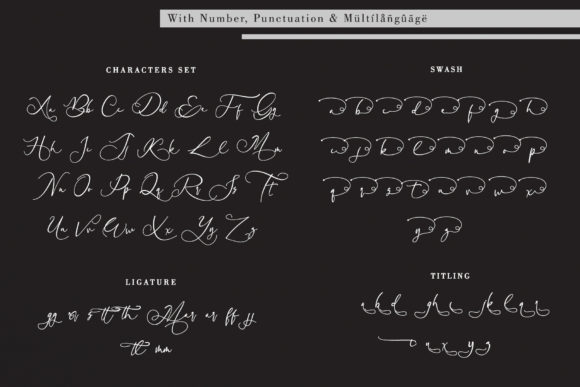 With Number, Punctuation & Mültílåñgûãgë
CHARACTERS SET
Aa Bb Cc Dd Ee Ff Gg
Hh Ii Jj Kk Ll Mm
Nn Oo Pp Qq Rr Ss Tt
Uu Vv Ww Xx Yy Zz
SWASH
a b c d e f g h
i j k l m n o p
q r s t u v w x
y z
LIGATURE
tt th Mar ar ff
tt mm
TITLING
a b d g h i j k l q
u x y z